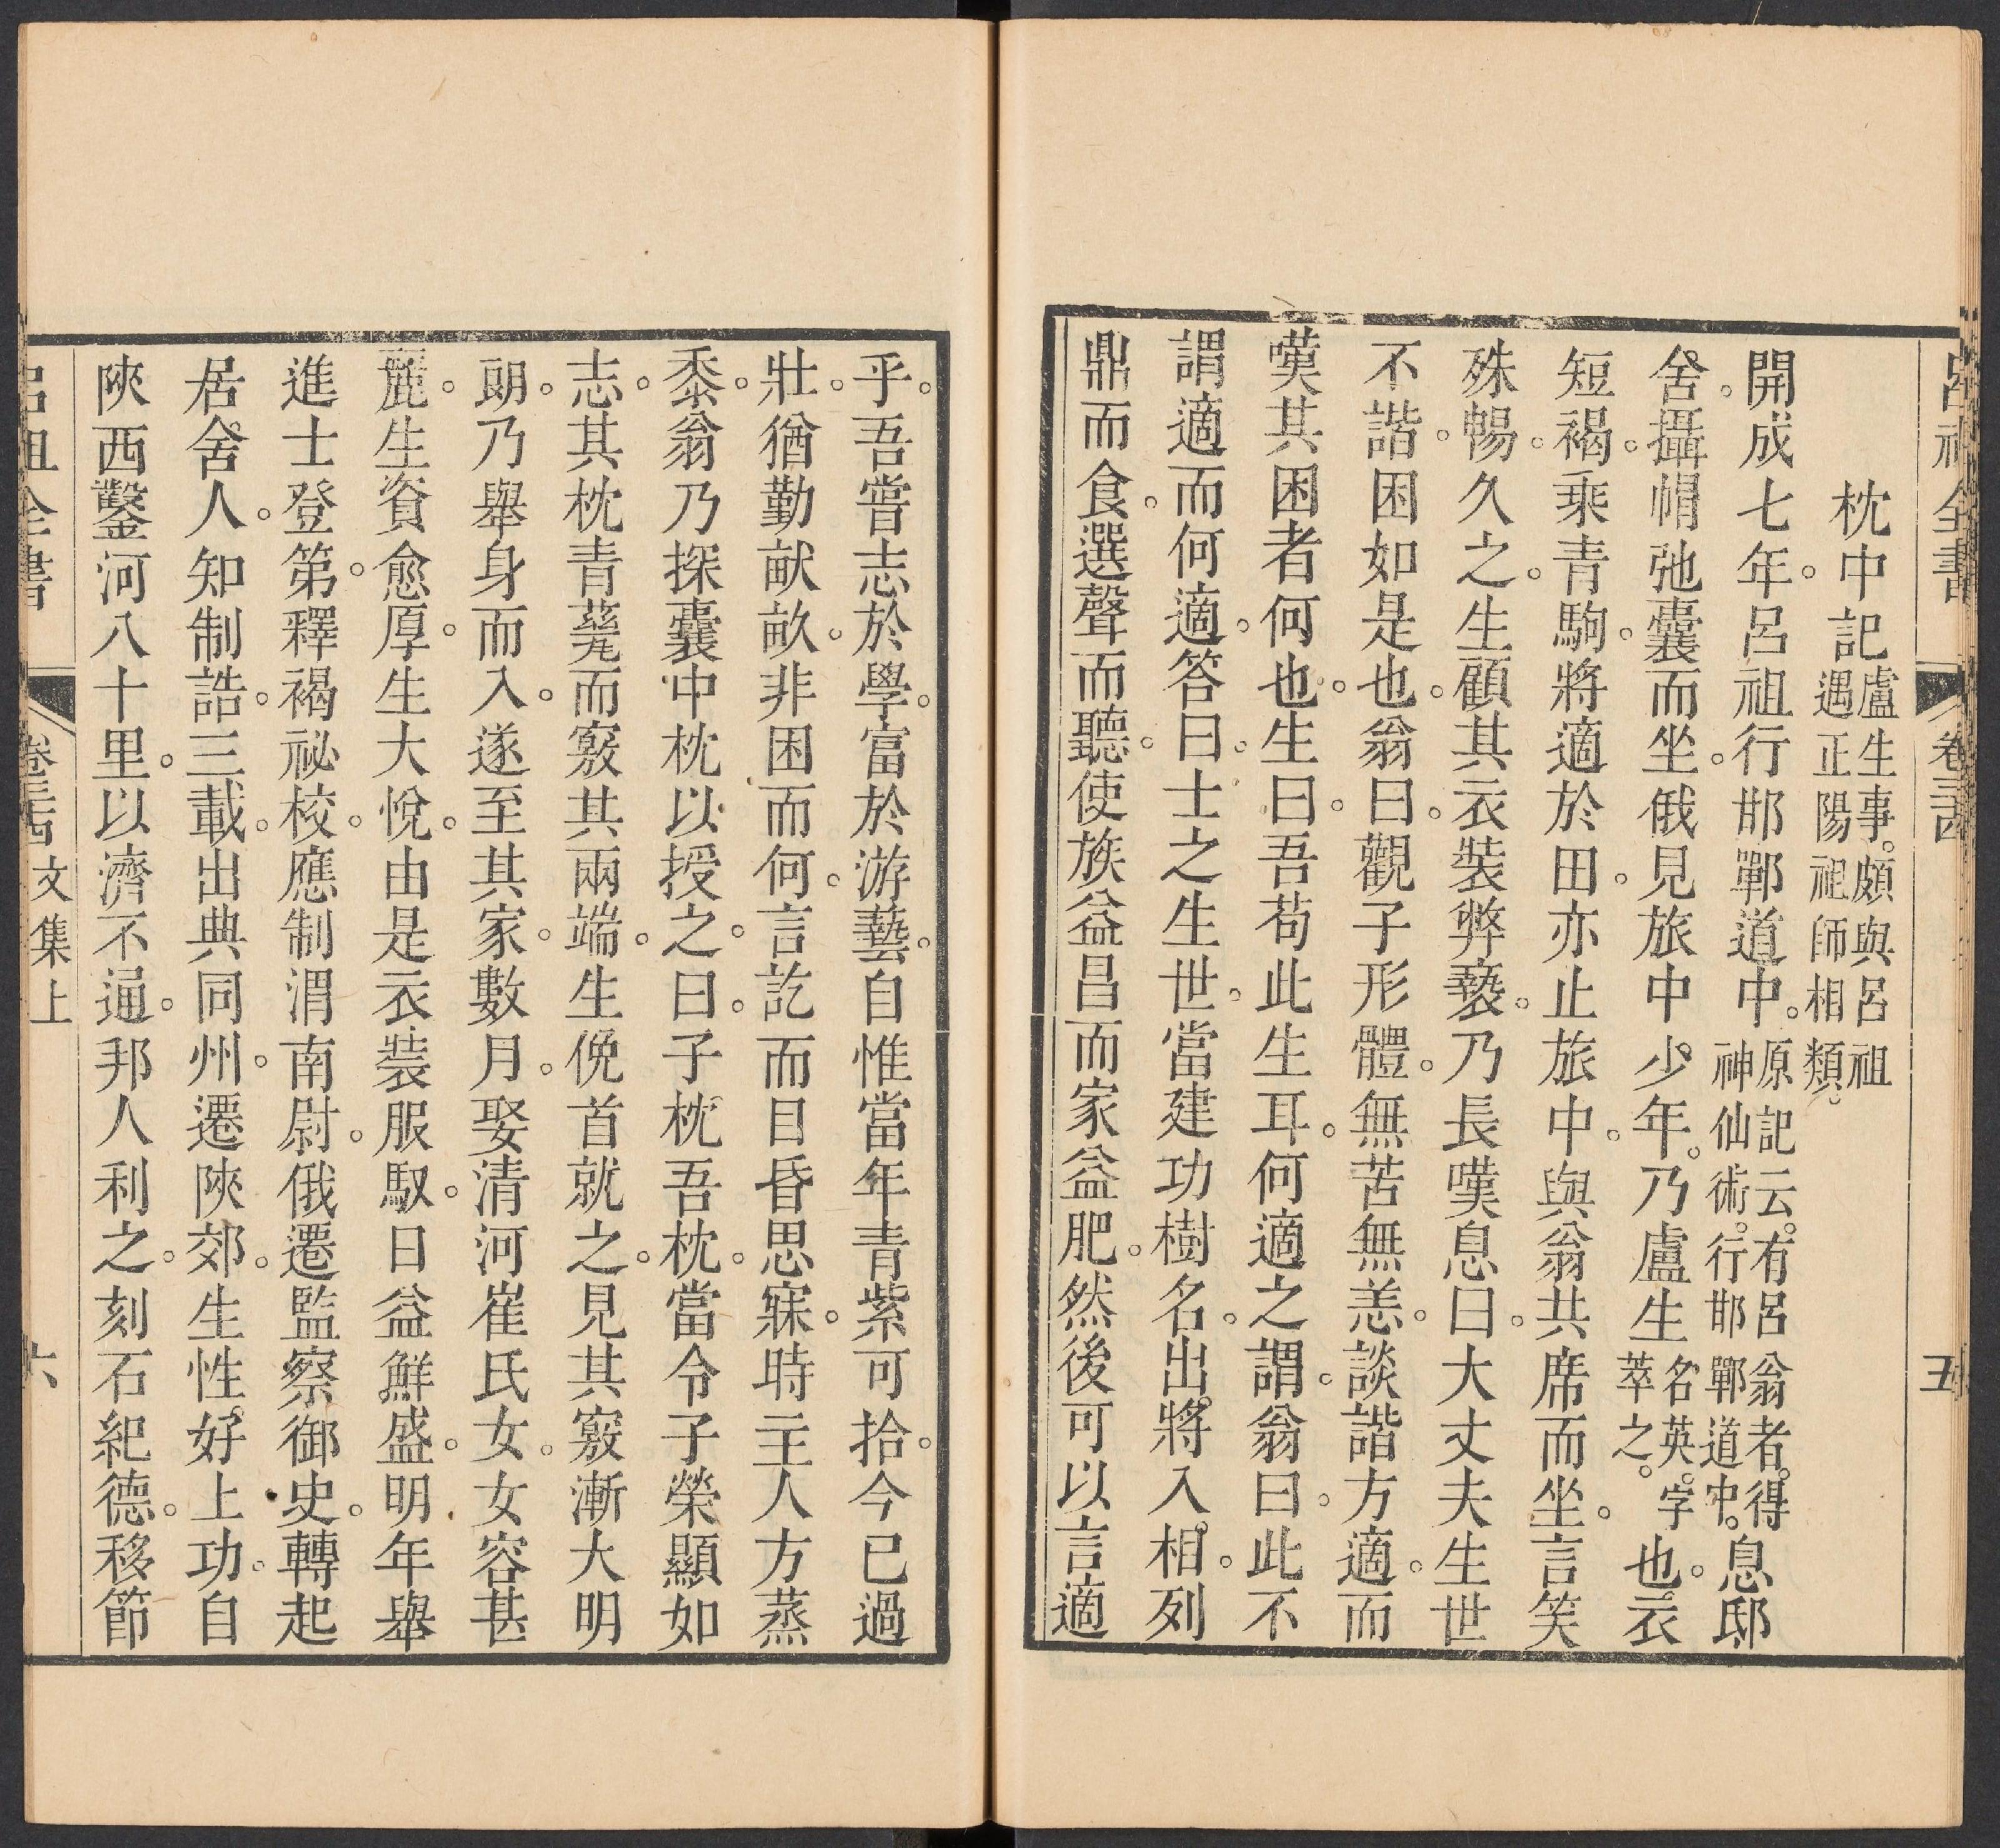 呂祖全書 卷三四 五
枕中記盧生事。頗與呂祖遇正陽祖師相類。
開成七年。呂祖行邯鄲道中。原記云。有呂翁者。得神仙術。行邯鄲道中。息邸
舍。攝帽弛囊而坐。俄見旅中少年。乃盧生名英。字萃之。也。衣
短褐。乘青駒。將適於田。亦止旅中。與翁共席而坐。言笑
殊暢。久之。生顧其衣裝弊褻。乃長嘆息曰。大丈夫生世
不諧。困如是也。翁曰。觀子形體。無苦無恙。談諧方適。而
嘆其困者何也。生曰。吾苟此生耳。何適之謂。翁曰。此不
謂適而何適。答曰。士之生世。當建功樹名。出將入相。列
鼎而食。選聲而聽。使族益昌而家益肥。然後可以言適
乎。吾嘗志於學。富於游藝。自惟當年青紫可拾。今已過
壯。猶勤畎畝。非困而何。言訖而目昏思寐。時主人方蒸
黍。翁乃探囊中枕以授之。曰。子枕吾枕。當令子榮顯如
志。其枕青甆而竅其兩端。生俛首就之。見其竅漸大明
朗。乃舉身而入。遂至其家。數月。娶清河崔氏女。女容甚
麗。生資愈厚。生大悅。由是衣裝服馭。日益鮮盛。明年舉
進士登第。釋褐祕校。應制渭南尉。俄遷監察御史。轉起
居舍人。知制誥。三載。出典同州。遷陝郊。生性好上功。自
陝西鑿河八十里。以濟不通。邦人利之。刻石紀德。移節
呂祖全書 卷三四 文集上 六